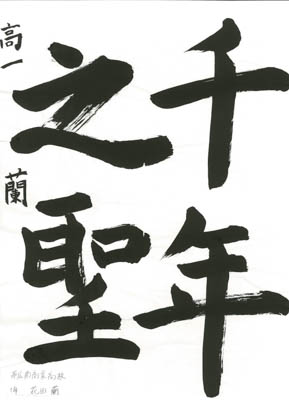 千年
之聖
高一 蘭
1年 花田 蘭